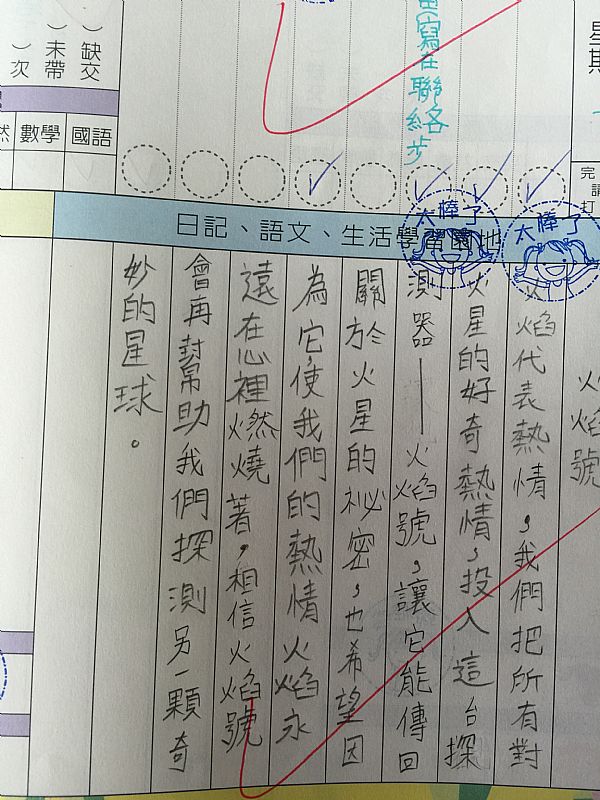 星期
完
請
打
寫在聯絡步
缺交
未帶
次
國語
數學
然
日記、語文、生活學習園地
太棒了
太棒了
火焰號
火焰代表熱情，我們把所有對
火星的好奇熱情，投入這台探
測器——火焰號，讓它能傳回
關於火星的祕密，也希望因
為它，使我們的熱情火焰永
遠在心裡燃燒著，相信火焰號
會再幫助我們探測另一顆奇
妙的星球。